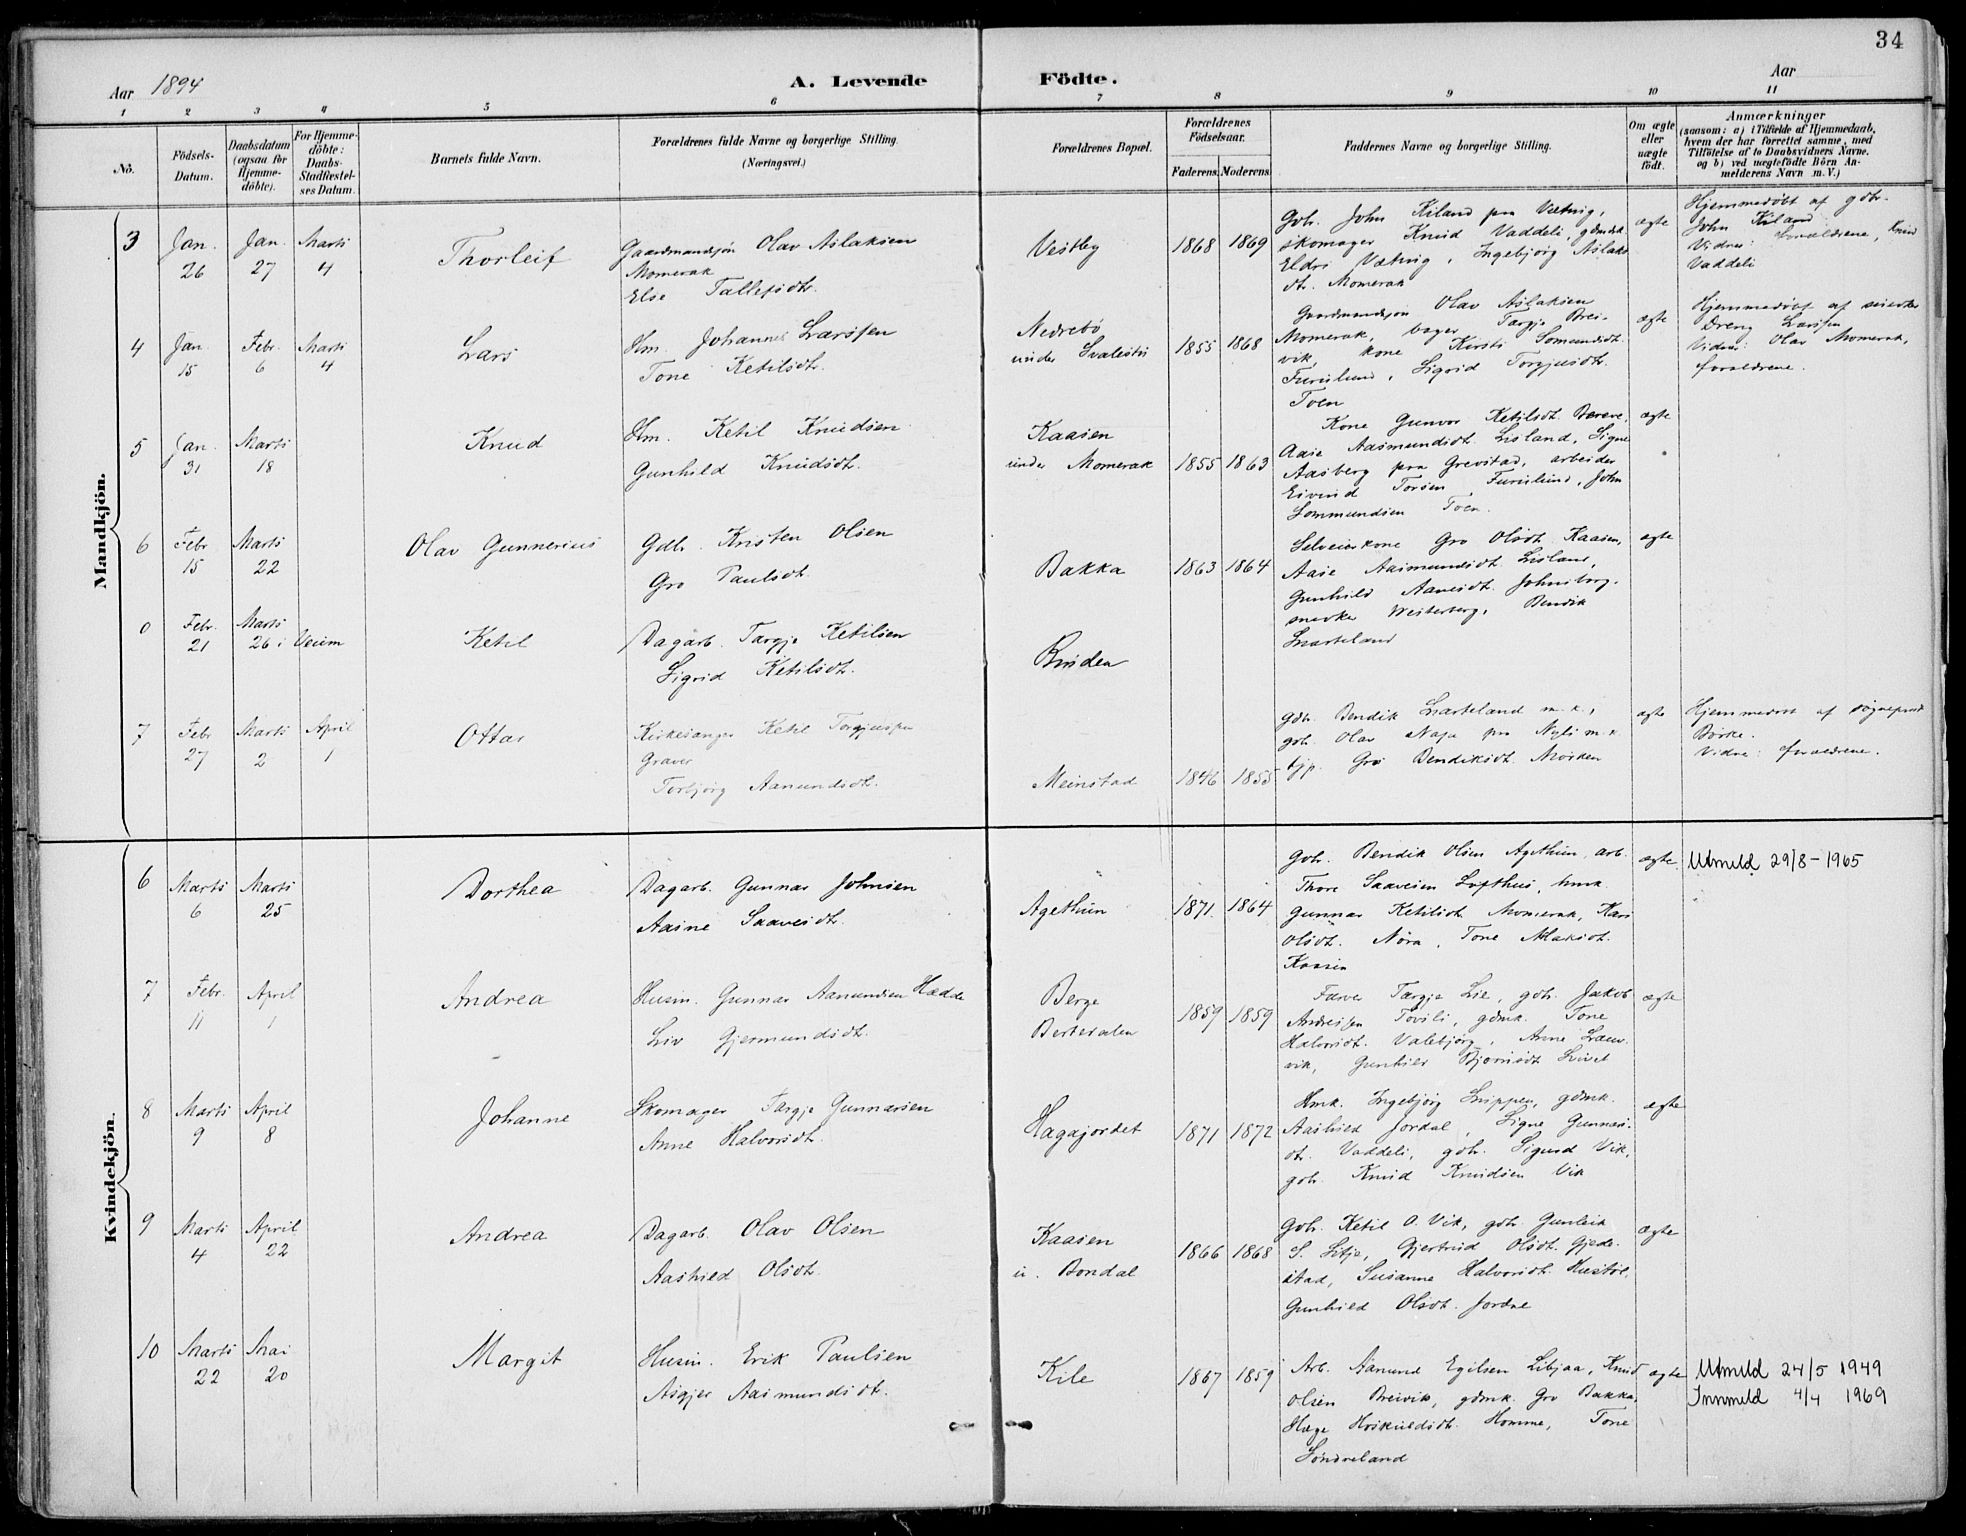 34
Aar 1894
A. Levende Födte.
Aar
1 2 3 4 5 6 7 8 9 10 11
No.
Födsels-
Datum.
Daabsdatum
(ogsaa för
Hjemme-
döbte).
For Hjemme-
döbte:
Daabs-
Stadfæstel-
ses Datum.
Barnets fulde Navn.
Forældrenes fulde Navne og borgerlige Stilling.
(Næringsvei.)
Forældrenes Bopæl.
Forældrenes
Födselsaar.
Faderens Moderens
Faddernes Navne og borgerlige Stilling.
Om ægte
eller
uægte
födt.
Anmærkninger
(saasom: a) i Tilfælde af Hjemmedaab,
hvem der har forrettet samme, med
Tilföielse af to Daabsvidners Navne,
og b) ved uægtefödte Börn An-
melderens Navn m. V.)
Mandkjön.
3
Jan. 26
Jan. 27
Marts 4
Thorleif
Gaardmandsjøn Olav Aslaksen
Momerak
Else Tallefsdtr.
Vestby
1868 1869
Gbr. John Kiland paa Vætnig,
skomager Knud Vaddeli,
Eldri Vætnig, Ingebjørg Aslaks
dtr. Momerak
ægte
Hjemmedøbt af gbr.
John Kiland
Vidner: Forældrene, Knud
Vaddeli
4
Jan. 15
Febr. 6
Marts 4
Lars
Hm. Johannes Larssen
Tone Ketilsdtr.
Nedrebö
under Svalestu
1855 1868
Gaardmandsjøn Olav Aslaksen
Momerak, bager Targje Brei-
vik, kone Kirsti Somundsdt.
Furuslund, Sigrid Torgjusdt.
Toen
ægte
Hjemmedøbt af
Dreng Larssen
Vidner: Olav Momerak,
forældrene.
5
Jan. 31
Marts 18
Knud
Hm. Ketil Knudsen
Gunhild Knudsdt.
Kaasen
under Momerak
1855 1863
Kone Gunvor Ketilsdt. Berge,
Aase Aasmundsdt. Lisland, Signe
Aasberg paa Grevstad, arbeider
Eivind Torsen Furuslund, John
Sommundsen Toen.
ægte
6
Febr 15
Marts 22
Olav Gunnerius
Gdb. Kristen Olsen
Gro Paulsdt.
Bakka
1863 1864
Selveierkone Gro Olsdt. Kaasen,
Aase Aasmundsdt. Lisland,
Gunhild Aanesdt. Johnsborg.
Westerberg, Bendik
Snarteland
ægte
0
Febr. 21
Marts 26 i Veum
Ketil
Dagarb. Targje Ketilsen
Sigrid Ketilsdt.
Bruden
7
Febr 27
Marts 2
April 1
Ottar
Kirkesanger Ketil Torgjussen
Graver
Torbjørg Aanundsdt.
Meinstad
1846 1855
gbr. Bendik Snarteland m. k.,
gbr. Olav Næsa paa Nesli m. k.
tjp. Gro Bendiksdt. Moiden
ægte
Hjemmedøbt af sogneprest
Børke.
Vidne: forældrene.
Kvindekjön.
6
Marts 6
Marts 25
Dorthea
Dagarb. Gunnar Johnsen
Aasne Saavesdt.
Agethun
1871 1864
Gbr. Bendik Olsen Agethun, arb.
Thore Saavesen Lofthus, hmk.
Gunnar Ketilsdt. Momerak, Kari
Olsdt. Nøra, Tone Aslaksdt.
Kaasen
ægte
Utmeld 29/8-1965
7
Febr. 11
April 1
Andrea
Husm. Gunnar Aanundsen Hædde
Liv Gjermundsdt.
Berge
Bertedalen
1859 1859
Farver Targje Lie, gbr. Jakob
Andresen Tovsli, gdmk. Tone
Halvorsdt. Valebjørg, Anne Laur-
vik, Gunhild Bjørnsdt.
ægte
8
Marts 9
April 8
Johanne
Skomager Targje Gunnarsen
Anne Halvorsdt.
Hagajordet
1871 1872
Hmk. Ingebjørg Snippen, gdmk.
Aashild Jordal, Signe Gunnars-
dt. Vaddeli, gbr. Sigurd Vik,
gbr. Knud Knudsen Vik
ægte
9
Marts 4
April 22
Andrea
Dagarb. Olav Olsen
Aashild Olsdt.
Kaasen
u. Bondal
1866 1868
Gbr. Ketil O. Vik, gbr. Gunleik
S. Litje, Gjertrud Olsdt. Gjede-
stad, Susanne Halvorsdt. Hustøl,
Gunhild Olsdt. Jordne
ægte
10
Marts 22
Mai 20
Margit
Husm. Erik Paulsen
Asgjer Aasmundsdt.
Kile
1867 1859
Arb. Aanund Egilsen Libjaa, Knud
Olsen Breivik, gdmk. Gro Bakka,
Hæge Høskuldsdt. Homme, Tone
Søndreland
ægte
Utmeld 24/5 1949
Innmeld 4/4 1969